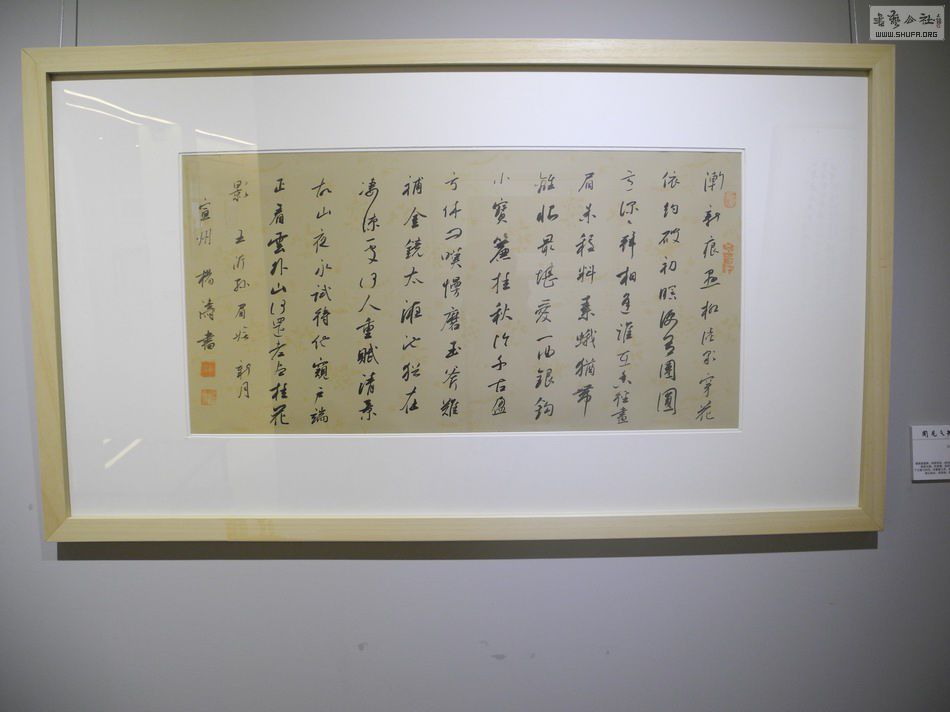 漸新痕悬柳淡彩穿花
依约破初暝便有團圓
意深深拜相逢誰在香徑畫
眉未穩料素蛾猶帶
離恨最堪愛一曲銀鉤
小寶簾挂秋冷千古盈
亏休問嘆慢磨玉斧難
補金鏡太液池猶在
凄凉處何人重賦清景
故山夜永試待他窺户端
正看雲外山河還老尽桂花
影 王沂孙眉嫵 新月
宣州 楊濤書
書藝公社
WWW.SHUFA.ORG